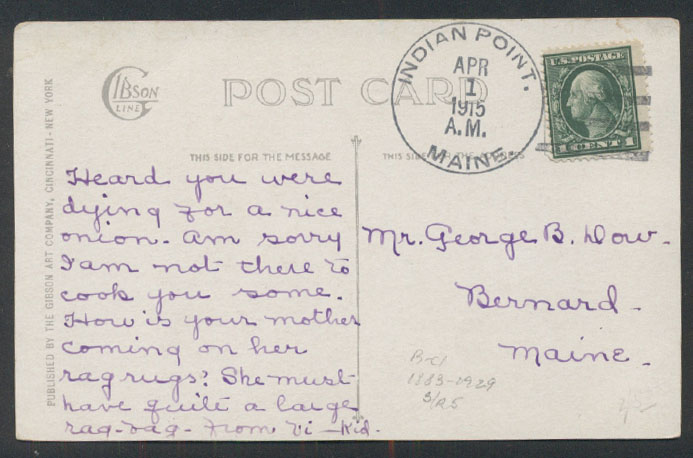 GIBSON
LINE
POST CARD
INDIAN POINT.
APR
1
1915
A.M.
MAINE.
U.S. POSTAGE
1 CENT 1
THIS SIDE FOR THE MESSAGE
THIS SIDE FOR THE ADDRESS
PUBLISHED BY THE GIBSON ART COMPANY, CINCINNATI - NEW YORK
Heard you were
dying for a nice
onion. Am sorry
I am not there to
cook you some.
How is your mother
coming on her
rag rugs? She must
have quite a large
rag-bag - From Vi - Kid.
Mr. George B. Dow.
Bernard.
Maine.
B-C1
1883-1929
3/R5